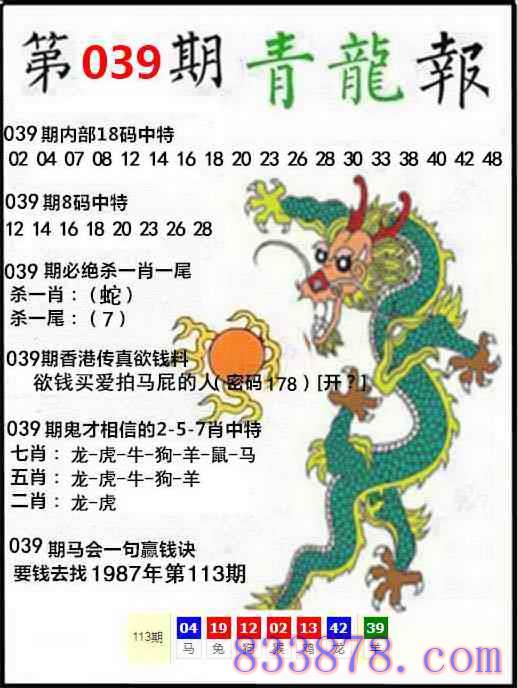 第039期青龍報
039期内部18码中特
02 04 07 08 12 14 16 18 20 23 26 28 30 33 38 40 42 48
039期8码中特
12 14 16 18 20 23 26 28
039期必绝杀一肖一尾
杀一肖：（蛇）
杀一尾：（7）
039期香港传真欲钱料
欲钱买爱拍马屁的人(密码178)[开?]
039期鬼才相信的2-5-7肖中特
七肖：龙-虎-牛-狗-羊-鼠-马
五肖：龙-虎-牛-狗-羊
二肖：龙-虎
039期马会一句赢钱诀
要钱去找1987年第113期
113期 04 19 12 02 13 42 39
马 兔 狗 猴 鸡 龙 羊
833878.com